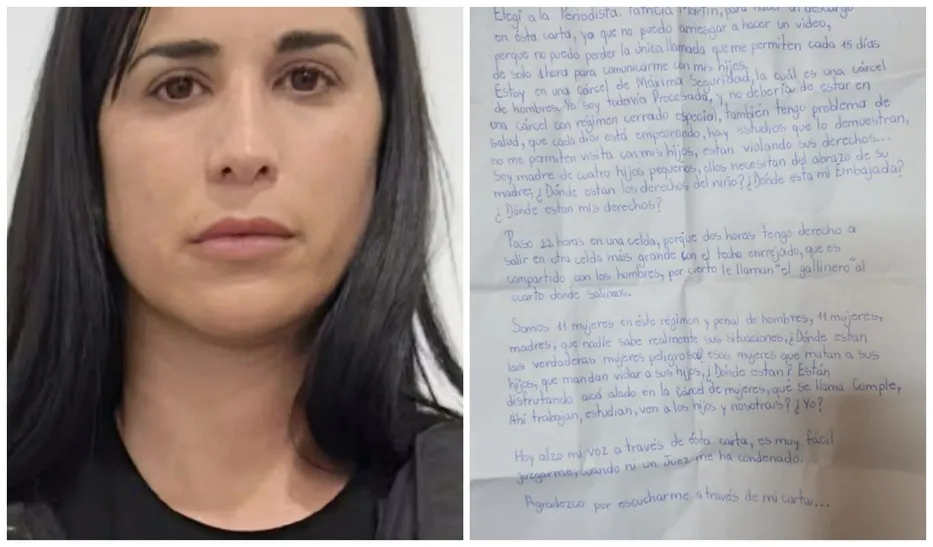 Elegí a la Periodista. Patricia Martín, para hacer un descargo
en ésta carta, ya que no puedo arriesgar a hacer un video,
porque no puedo perder la única llamada que me permiten cada 15 días
de solo 1 hora para comunicarme con mis hijos.
Estoy en una cárcel de Máxima Seguridad, la cuál es una cárcel
de hombres. Yo soy todavía Procesada, y no debería de estar en
una cárcel con régimen cerrado especial, también tengo problema de
salud, que cada día está empeorando, hay estudios que lo demuestran,
no me permiten visita con mis hijos, están violando sus derechos...
Soy madre de cuatro hijos pequeños, ellos necesitan del abrazo de su
madre, ¿Dónde estan los derechos del niño? ¿Dónde esta mi Embajada?
¿Dónde estan mis derechos?
Paso 22 horas en una celda, porque dos horas tengo derecho a
salir en otra celda más grande con el techo enrejado, que es
compartido con los hombres, por cierto le llaman "el gallinero" al
cuarto donde salimos.
Somos 11 mujeres en éste régimen y penal de hombres, 11 mujeres,
madres, que nadie sabe realmente sus situaciones, ¿Dónde estan
las verdaderas mujeres peligrosas esas mujeres que matan a sus
hijos, que mandan violar a sus hijos, ¿Dónde estan? Están
disfrutando acá alado en la Cárcel de mujeres, que se llama Comple,
Ahí trabajan, estudian, ven a los hijos y nosotras? ¿Yo?
Hoy alzo mi voz a través de ésta carta, es muy fácil
juzgarme, cuando ni un Juez me ha condenado.
Agradezco por escucharme a través de mi carta...